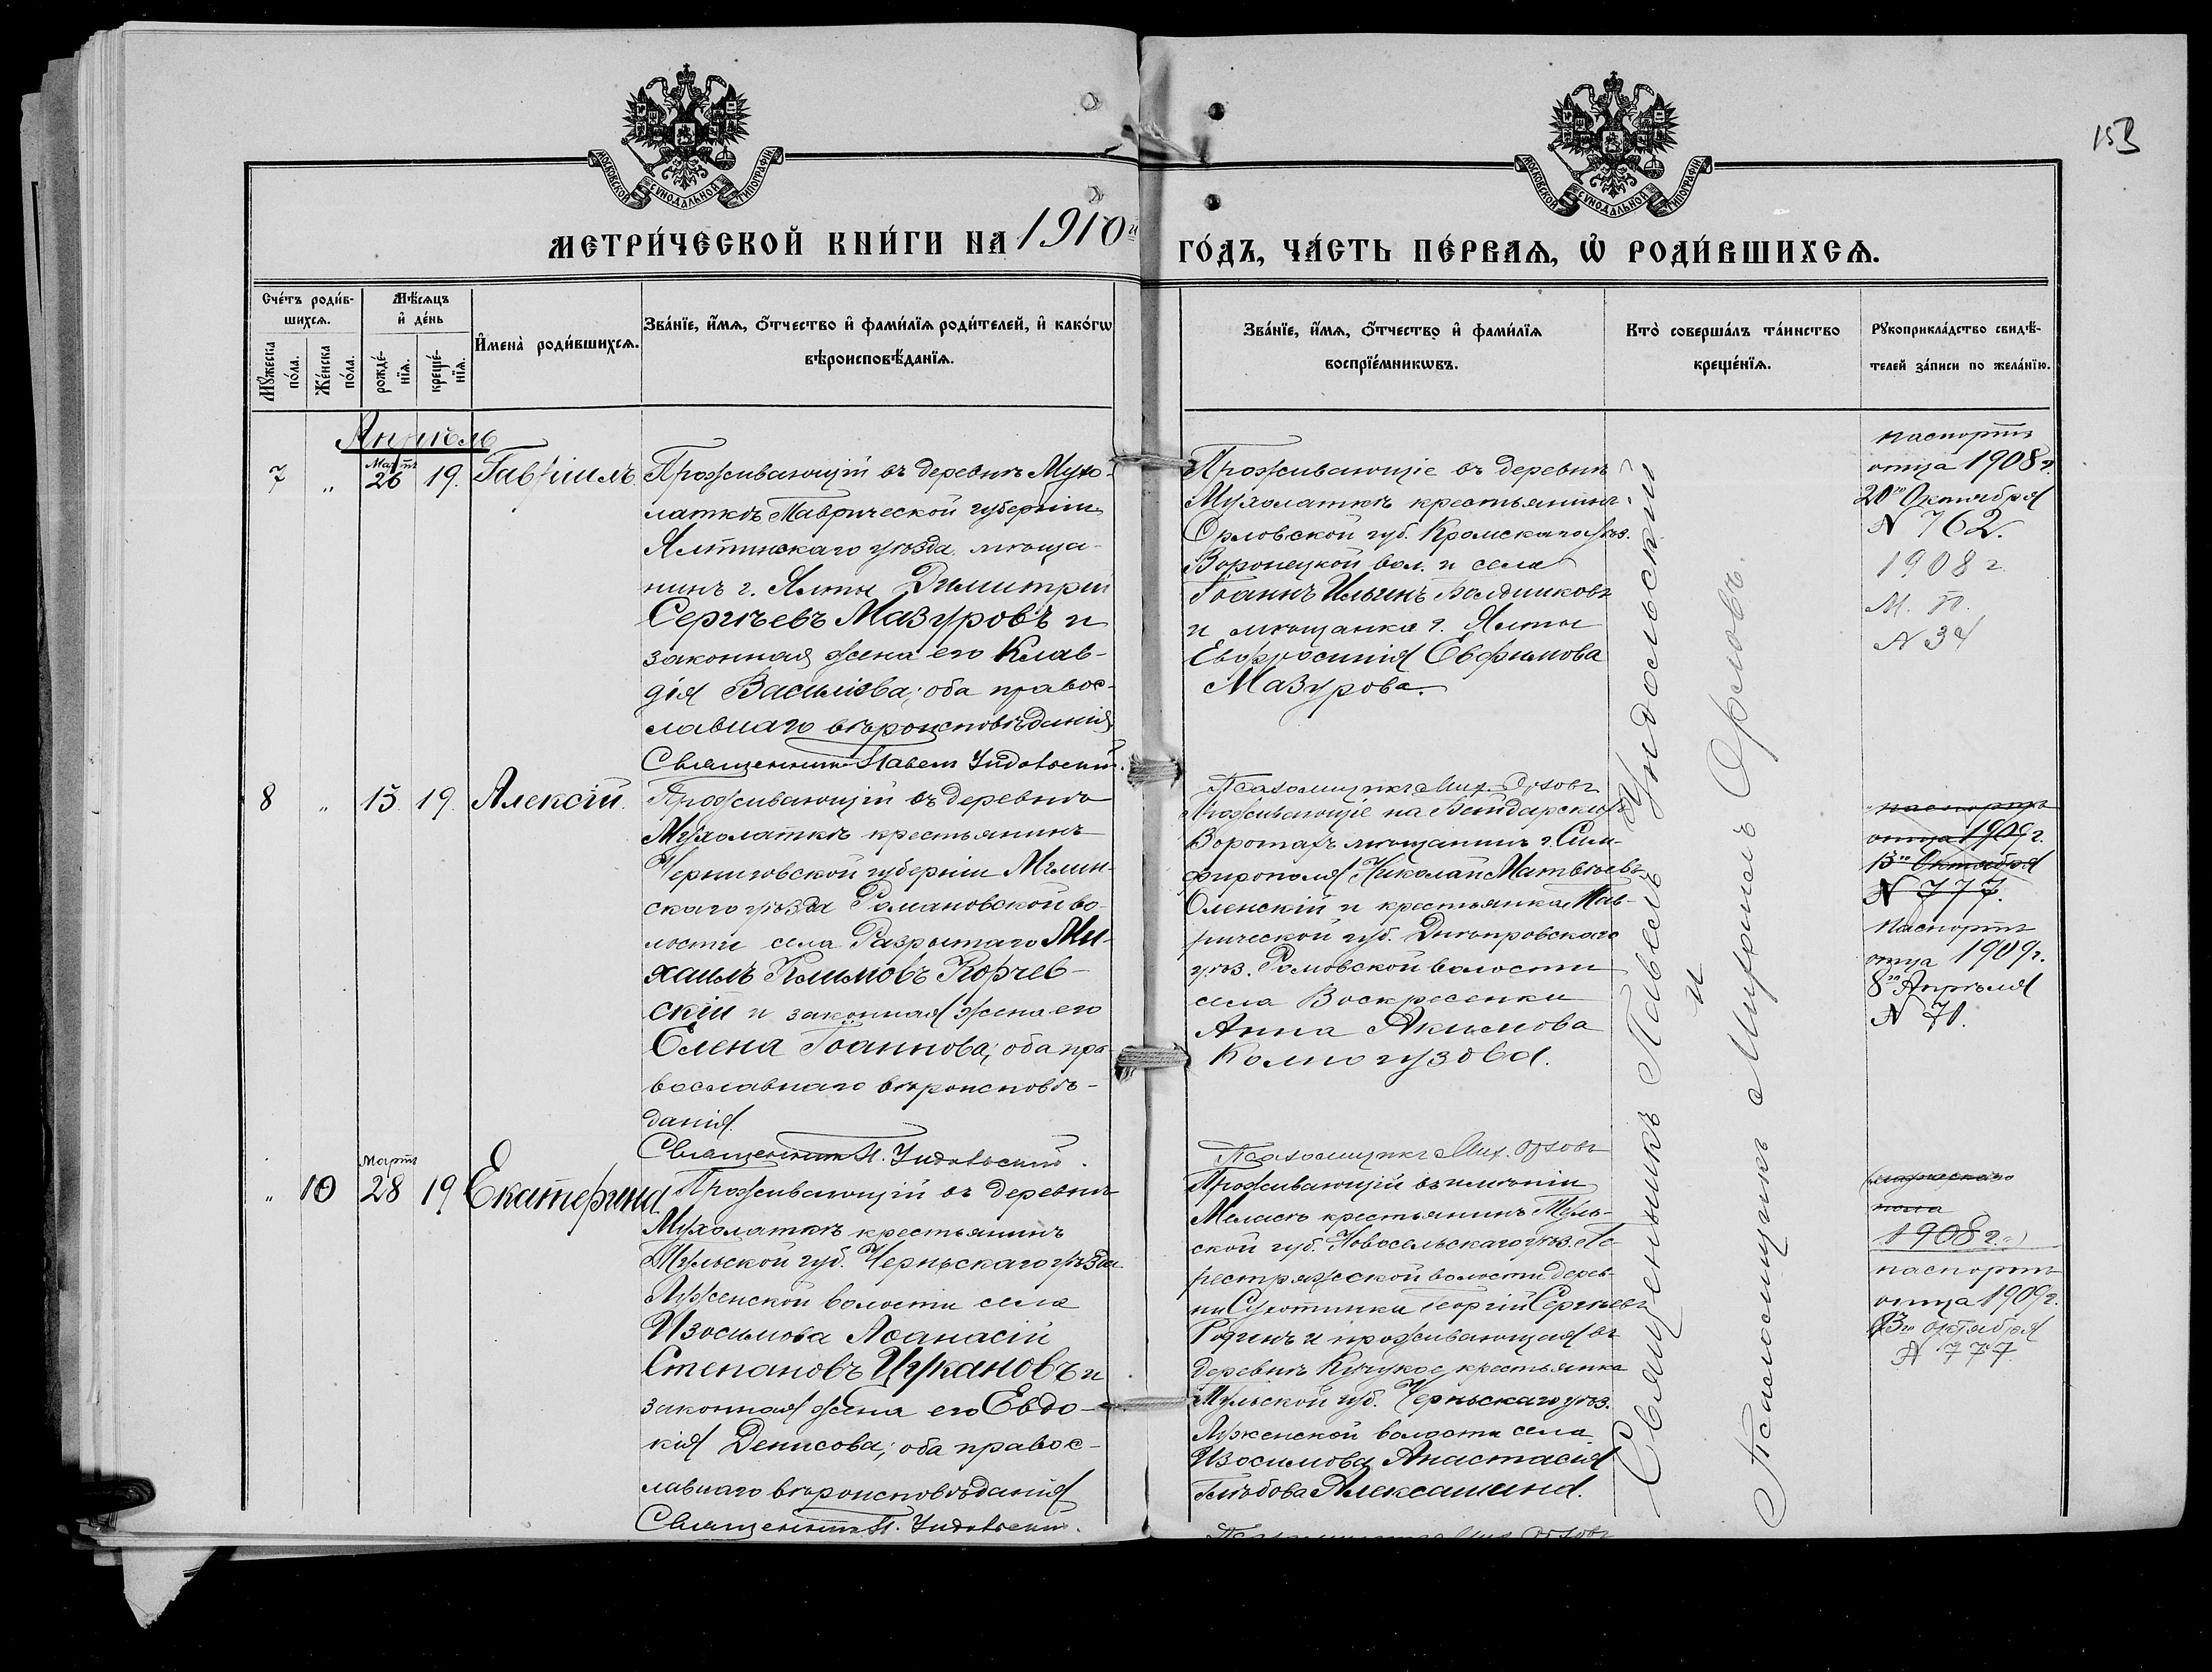 153
МОСКОВСКОЙ СУНОДАЛЬНОЙ ТИПОГРАФІИ
МОСКОВСКОЙ СУНОДАЛЬНОЙ ТИПОГРАФІИ
МЕТРИ́ЧЕСКОЙ КНИ́ГИ НА 1910й
ГО́ДЪ, ЧА́СТЬ ПЕ́РВАѦ, Ѡ҆ РОДИ́ВШИХСѦ.
Сче́тъ роди́в-
шихсѧ.
Мꙋ́жеска
по́ла.
Же́нска
по́ла.
Мѣ́сѧцъ
и҆ де́нь
рожде́-
нїѧ.
креще́-
нїѧ.
И҆мена̀ роди́вшихсѧ.
Зва́нїе, и҆́мѧ, о҆́тчество и҆ фами́лїѧ роди́телей, и҆ како́гѡ
вѣроисповѣ́данїѧ.
Зва́нїе, и҆́мѧ, о҆́тчество и҆ фами́лїѧ
воспрїе́мникѡвъ.
Кто̀ соверша́лъ та́инство
креще́нїѧ.
Рꙋкоприкла́дство свидѣ́-
телей за́писи по жела́нїю.
Апрѣль
7
„
Мартъ
26
19.
Гавріилъ.
Проживающій въ деревнѣ Мухо-
латкѣ Таврической губерніи
Ялтинскаго уѣзда мѣща-
нинъ г. Ялты Димитрій
Сергѣевъ Мазуровъ и
законная жена его Клав-
дія Васильева; оба правос-
лавнаго вѣроисповѣданія
Священникъ Павелъ Ундольскій.
Проживающіе въ деревнѣ
Мухолаткѣ крестьянинъ
Орловской губ. Кромскаго уѣз.
Воронецкой вол. и села
Іоаннъ Ильинъ Болдинковъ
и мѣщанка г. Ялты
Евфросинія Евфимова
Мазурова.
Псаломщикъ Мих. Орловъ
паспортъ
отца 1908 г.
20го Октября
N 762.
1908 г.
М. п.
N 34
8
„
15
19.
Алексій.
Проживающій въ деревнѣ
Мухолаткѣ крестьянинъ
Черниговской губерніи Мглин-
скаго уѣзда Романовской во-
лости села Разрытаго Ми-
хаилъ Климовъ Корчев-
скій и законная жена его
Елена Іоаннова; оба пра-
вославнаго вѣроисповѣ-
данія.
Священникъ П. Ундольскій.
Проживающіе на Байдарскихъ
Воротахъ мѣщанинъ г. Сим-
ферополя Николай Матвѣевъ
Оленскій и крестьянка Тав-
рической губ. Днѣпровскаго
уѣз. Ромовской волости
села Воскресенки
Анна Акимова
Колногузова.
Псаломщикъ Мих. Орловъ
паспортъ
отца 1909 г.
13го Октября
N 777.
Паспортъ
отца 1909 г.
8го Апрѣля
N 71.
„
10
Мартъ
28
19
Екатерина
Проживающій въ деревнѣ
Мухолаткѣ крестьянинъ
Тульской губ. Черньскаго уѣзда
Луженской волости села
Изосимова Аѳанасій
Степановъ Цукановъ и
законная жена его Евдо-
кія Денисова; оба правос-
лавнаго вѣроисповѣданія
Священникъ П. Ундольскій.
Проживающій въ имѣніи
Меласъ крестьянинъ Туль-
ской губ. Новосельскаго уѣз.
волости дерев-
ни Сухотинки Георгій Сергѣевъ
Родинъ и проживающая въ
деревнѣ Кучукое крестьянка
Тульской губ. Черньскаго уѣз.
Луженской волости села
Изосимова Анастасія
Глѣбова Алексашина.
Псаломщикъ Мих. Орловъ
1908 г.
паспортъ
отца 1909 г.
13го октября
N 777.
Священникъ Павелъ Ундольскій
и
Псаломщикъ Михаилъ Орловъ.